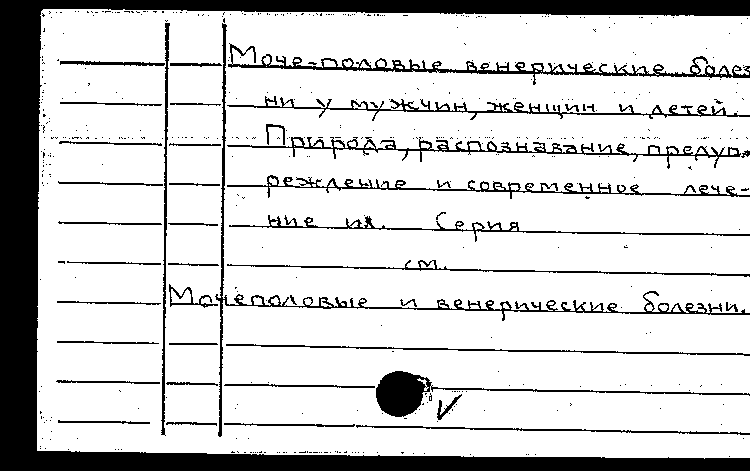 Моче-половые венерические болез
ни у мужчин, женщин и детей.
Природа, распознавание, предуп-
реждение и современное лече-
ние их. Серия
см.
Мочеполовые и венерические болезни.